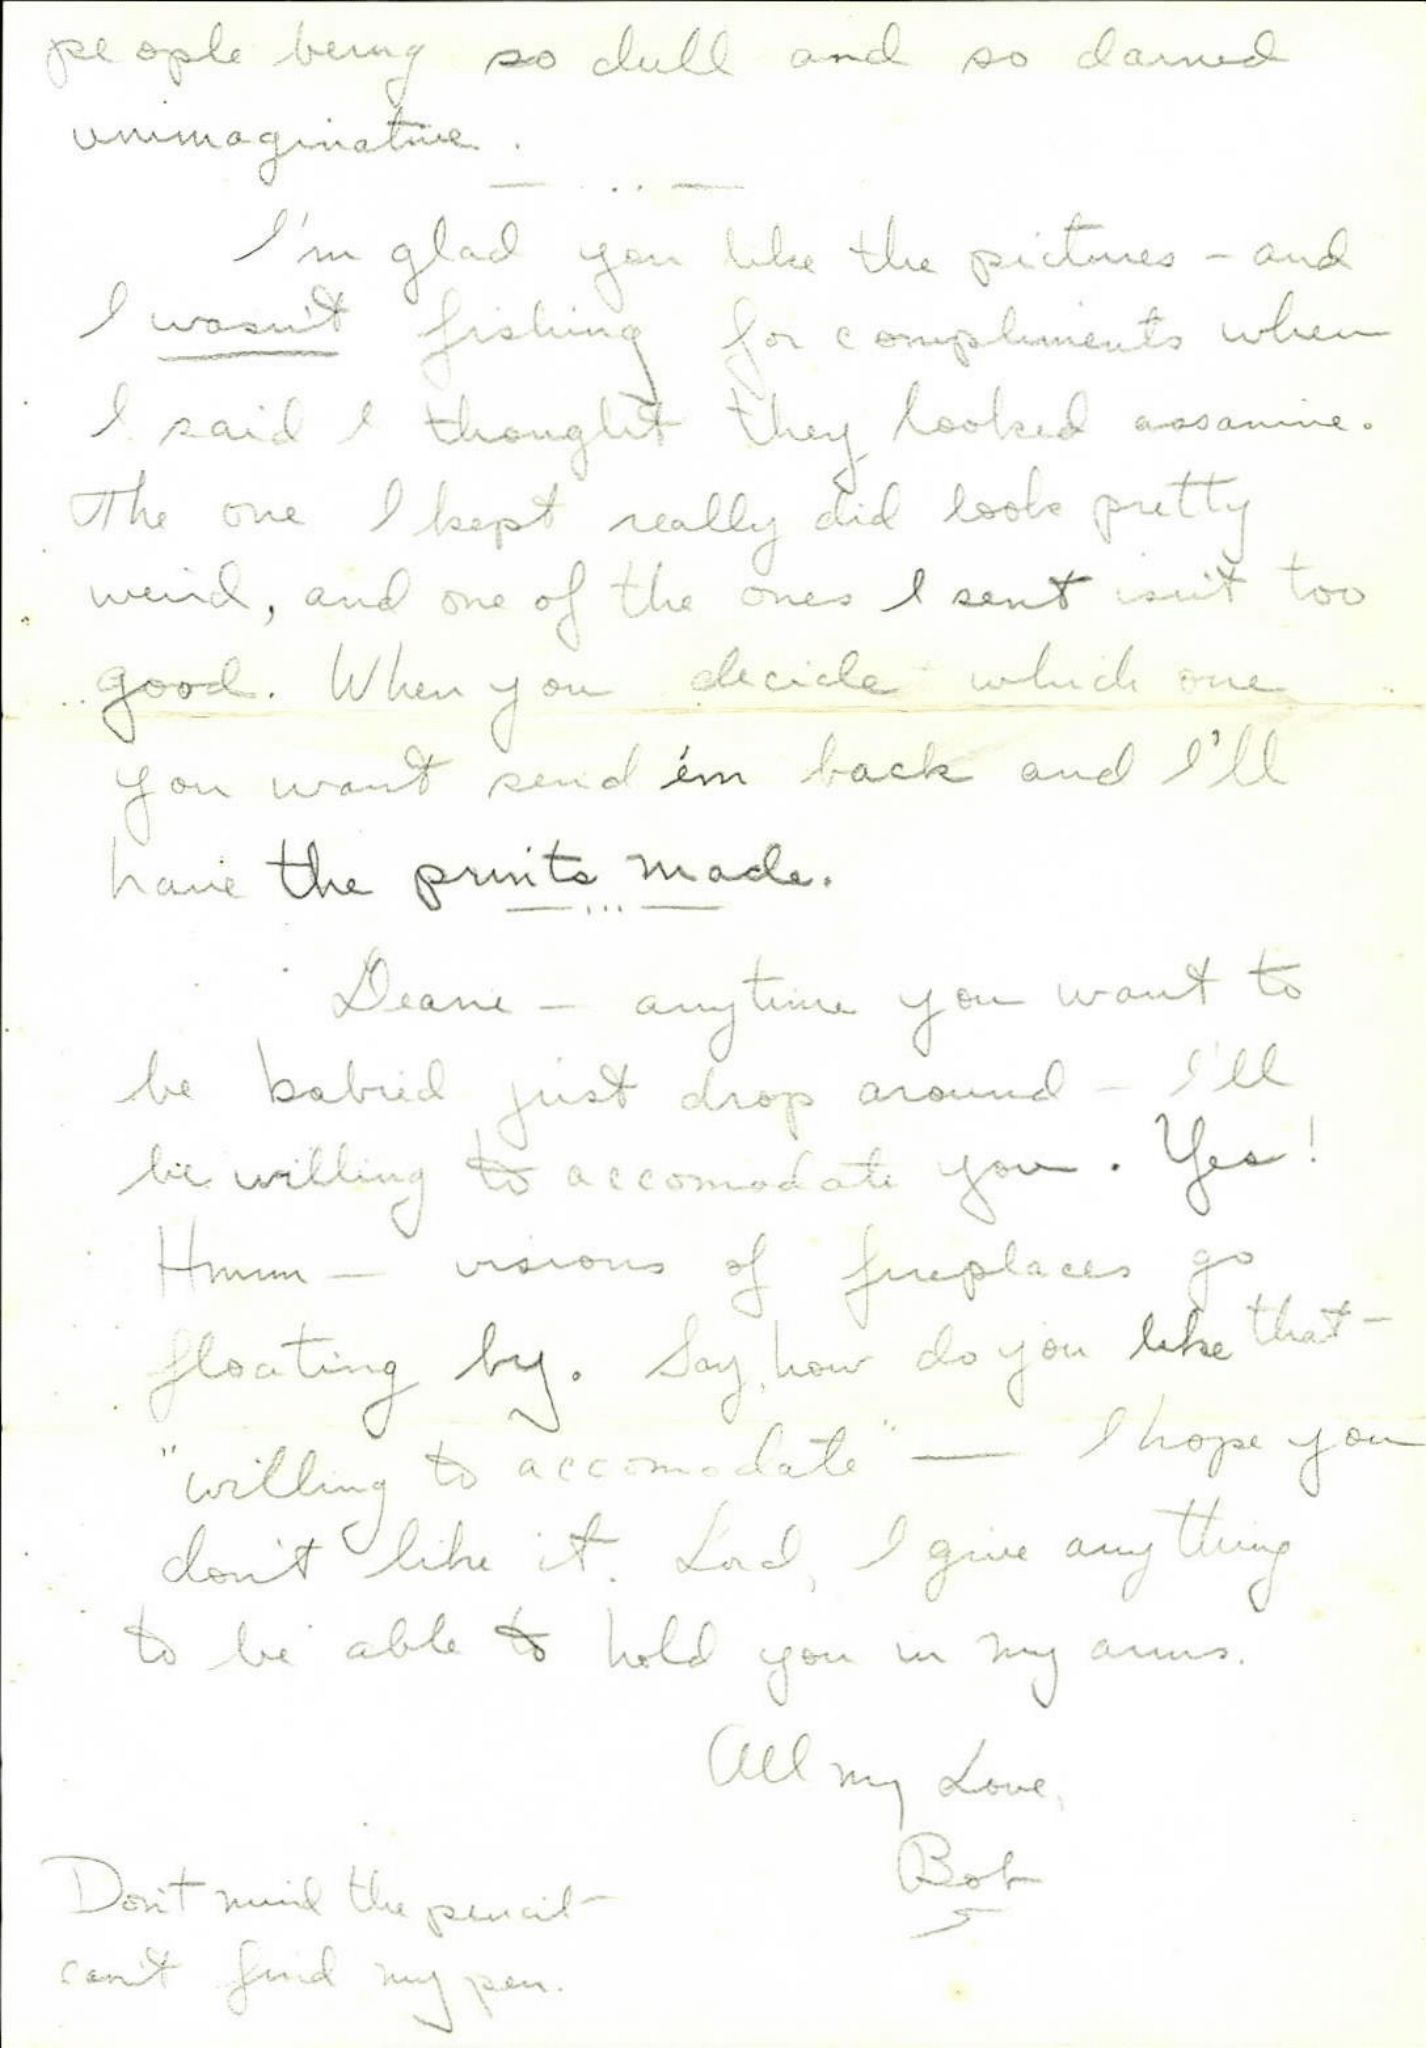 people being so dull and so darned
unimaginative.
— .. —
I'm glad you like the pictures – and
I wasn't fishing for compliments when
I said I thought they looked assanine.
The one I kept really did look pretty
weird, and one of the ones I sent isn't too
good. When you decide which one
you want send 'em back and I'll
have the prints made.
— ... —
Deane – anytime you want to
be babied just drop around – I'll
be willing to accomodate you. Yes!
Hmmm – visions of fireplaces go
floating by. Say, how do you like that –
"willing to accomodate" — I hope you
don't like it. Lord, I give anything
to be able to hold you in my arms.
All my Love,
Bob
Don't mind the pencil –
can't find my pen.